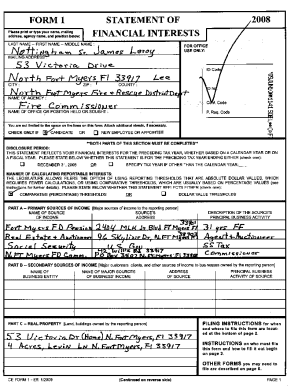 FORM 1 STATEMENT OF 2008
Please print or type your name, mailing address, agency name, and position below: FINANCIAL INTERESTS
LAST NAME -- FIRST NAME -- MIDDLE NAME : FOR OFFICE USE ONLY:
Nottingham Sr. James Leroy
MAILING ADDRESS :
53 Victoria Drive
North Fort Myers Fl 33917 Lee
CITY : ZIP : COUNTY :
North Fort Myers Fire + Rescue District Dept
NAME OF AGENCY :
Fire Commissioner
NAME OF OFFICE OR POSITION HELD OR SOUGHT :
ID Code
ID No.
Conf. Code
P. Req. Code
You are not limited to the space on the lines on this form. Attach additional sheets, if necessary.
CHECK ONLY IF CANDIDATE OR NEW EMPLOYEE OR APPOINTEE
**BOTH PARTS OF THIS SECTION MUST BE COMPLETED**
DISCLOSURE PERIOD:
THIS STATEMENT REFLECTS YOUR FINANCIAL INTERESTS FOR THE PRECEDING TAX YEAR, WHETHER BASED ON A CALENDAR YEAR OR ON A FISCAL YEAR. PLEASE STATE BELOW WHETHER THIS STATEMENT IS FOR THE PRECEDING TAX YEAR ENDING EITHER (check one):
DECEMBER 31, 2008 OR SPECIFY TAX YEAR IF OTHER THAN THE CALENDAR YEAR:
MANNER OF CALCULATING REPORTABLE INTERESTS:
THE LEGISLATURE ALLOWS FILERS THE OPTION OF USING REPORTING THRESHOLDS THAT ARE ABSOLUTE DOLLAR VALUES, WHICH REQUIRES FEWER CALCULATIONS, OR USING COMPARATIVE THRESHOLDS, WHICH ARE USUALLY BASED ON PERCENTAGE VALUES (see instructions for further details). PLEASE STATE BELOW WHETHER THIS STATEMENT REFLECTS EITHER (check one):
COMPARATIVE (PERCENTAGE) THRESHOLDS OR DOLLAR VALUE THRESHOLDS
PART A -- PRIMARY SOURCES OF INCOME [Major sources of income to the reporting person]
NAME OF SOURCE OF INCOME SOURCE'S ADDRESS DESCRIPTION OF THE SOURCE'S PRINCIPAL BUSINESS ACTIVITY
Fort Myers FD Pension 31 yrs FF
Real Estate + Auctioneer Auctioneer
Social Security U.S. Gov SS Tax
N. FT Myers FD Comm. Commissioner
PART B -- SECONDARY SOURCES OF INCOME [Major customers, clients, and other sources of income to businesses owned by reporting person]
NAME OF BUSINESS ENTITY NAME OF MAJOR SOURCES OF BUSINESS' INCOME ADDRESS OF SOURCE PRINCIPAL BUSINESS ACTIVITY OF SOURCE
PART C -- REAL PROPERTY [Land, buildings owned by the reporting person]
53 Victoria Dr (Home) N. Fort Myers, Fl 33917
4 Acres, Levin Ln N. Fort Myers, Fl 33917
FILING INSTRUCTIONS for when and where to file this form are located at the bottom of page 2.
INSTRUCTIONS on who must file this form and how to fill it out begin on page 3.
OTHER FORMS you may need to file are described on page 6.
CE FORM 1 - Eff. 1/2009 (Continued on reverse side) PAGE 1